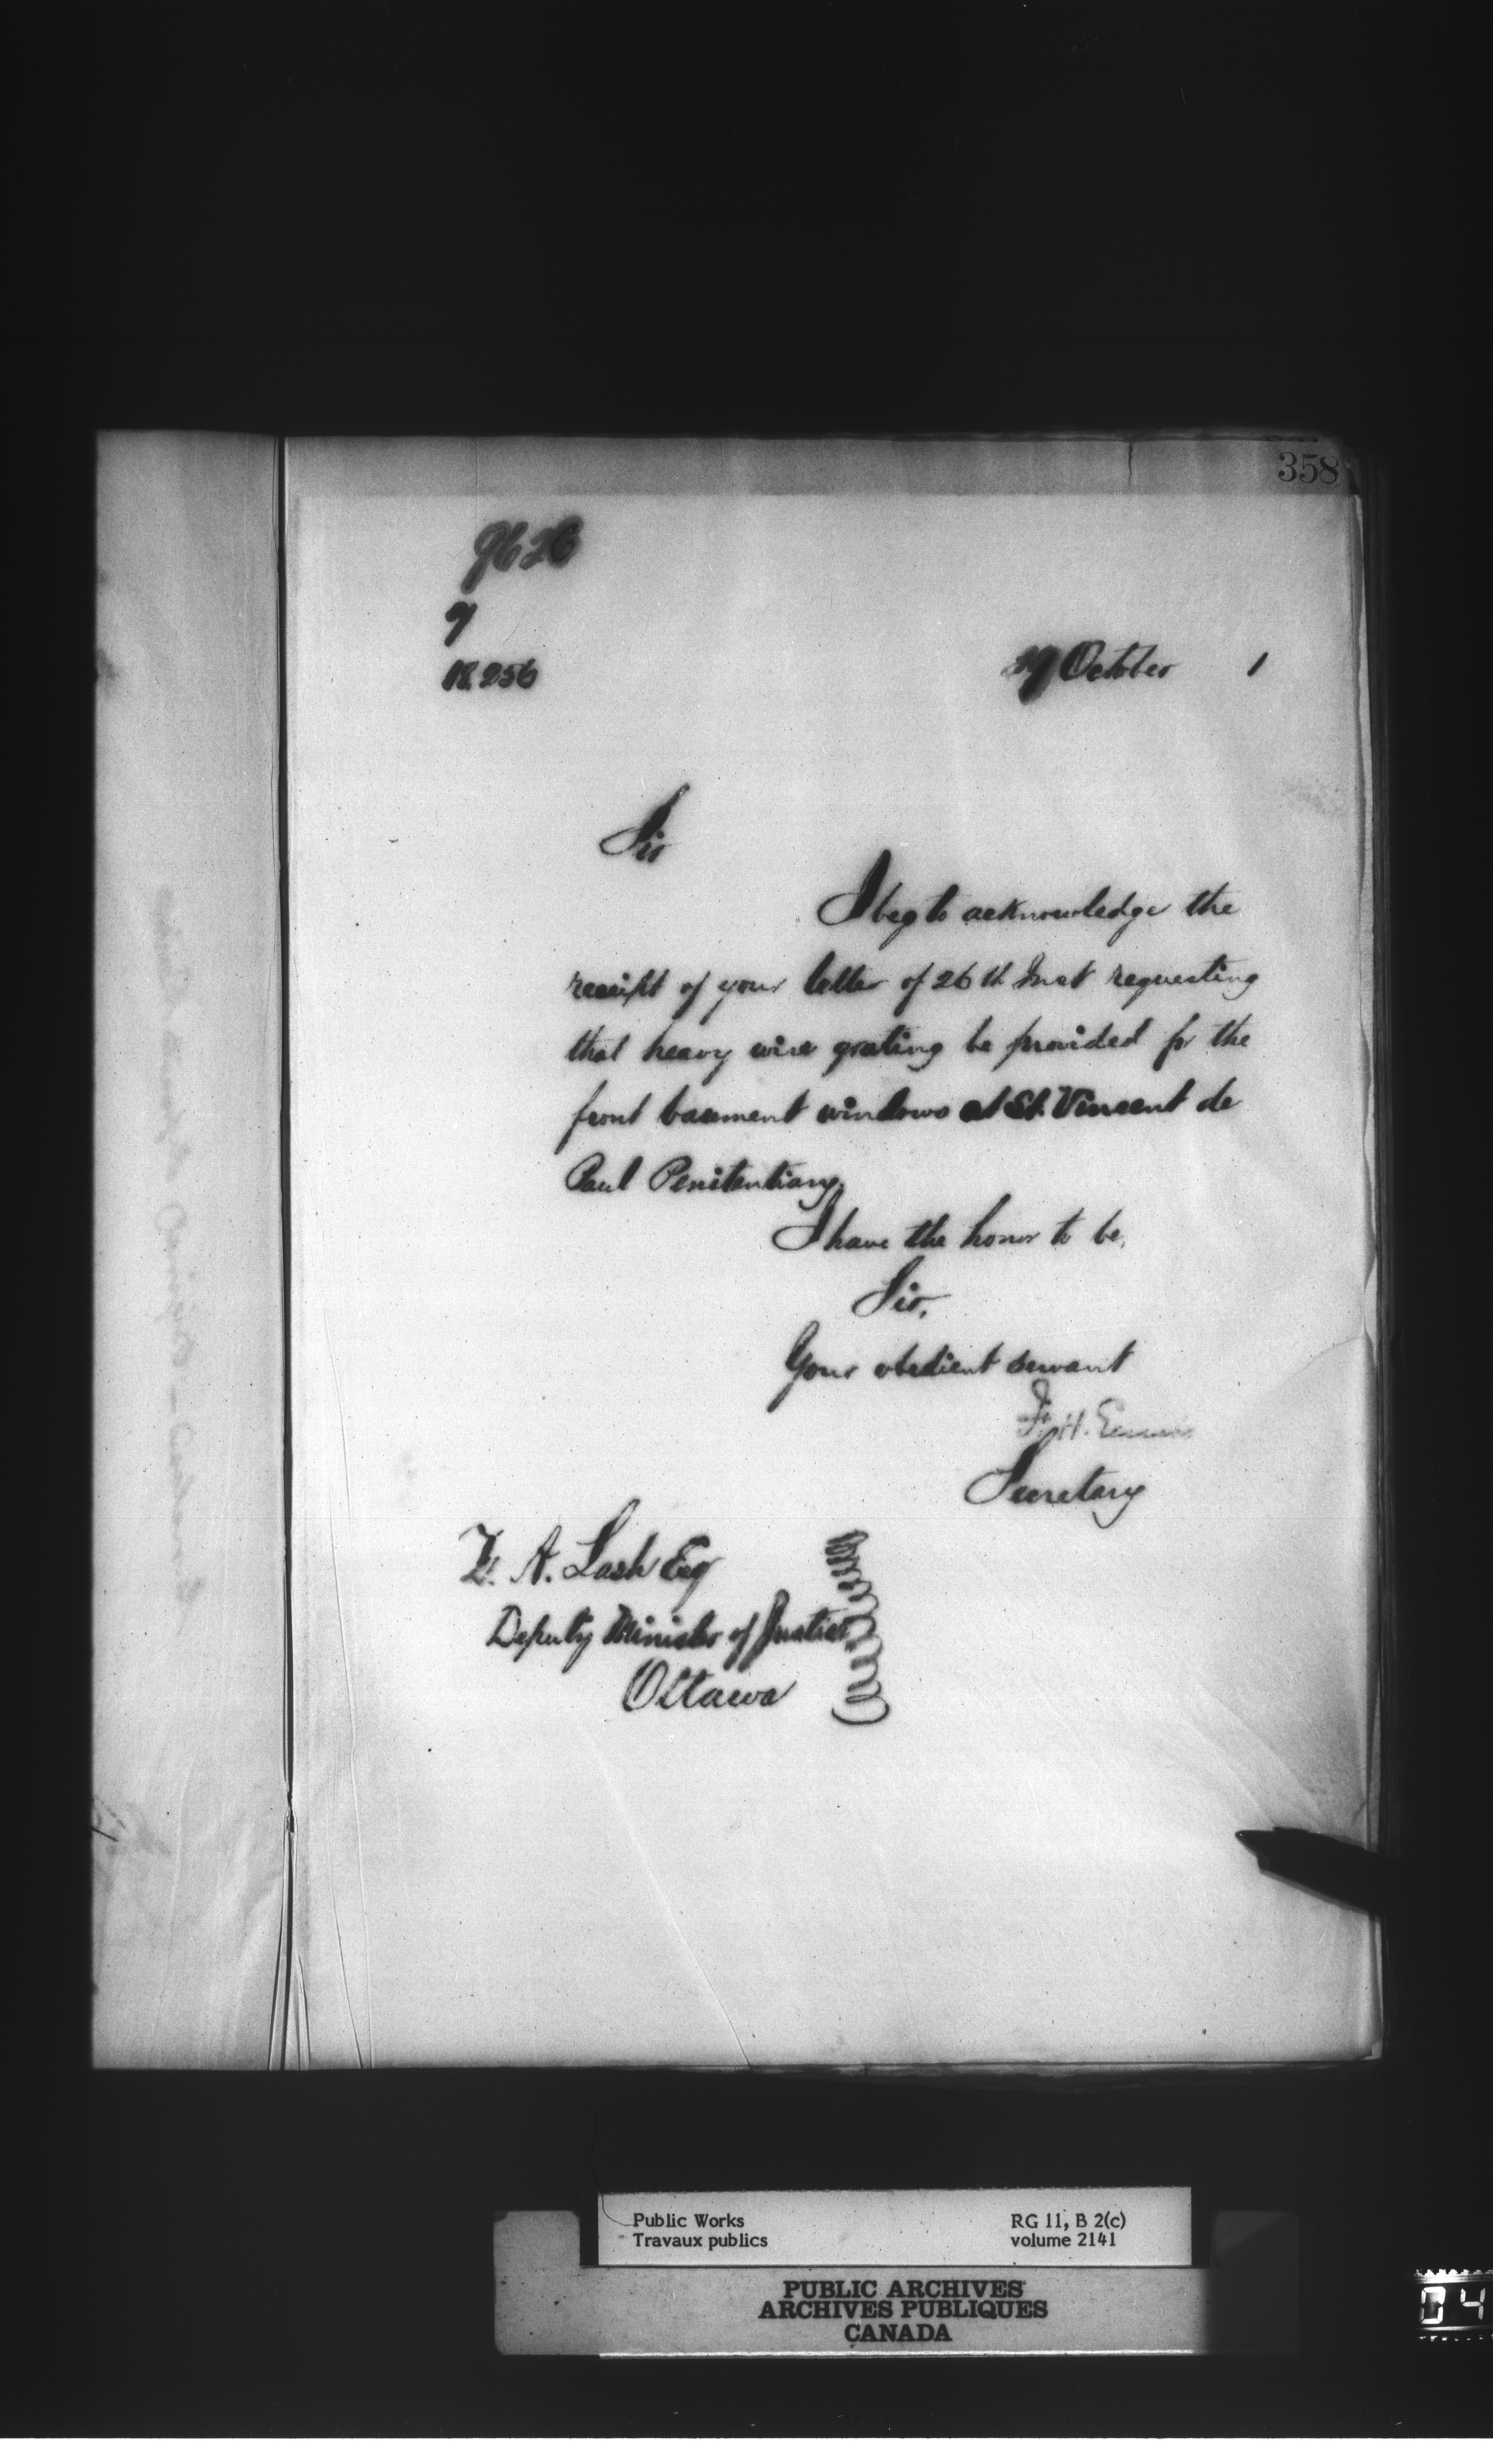 358
9626
9
18256
29 October 1
Sir
I beg to acknowledge the
receipt of your letter of 26th Inst requesting
that heavy wire grating be provided for the
front basement windows at St. Vincent de
Paul Penitentiary.
I have the honor to be,
Sir,
Your obedient servant
F. H. Ennis
Secretary
Z. A. Lash Esq
Deputy Minister of Justice
Ottawa
Public Works
Travaux publics
RG 11, B 2(c)
volume 2141
PUBLIC ARCHIVES
ARCHIVES PUBLIQUES
CANADA
04